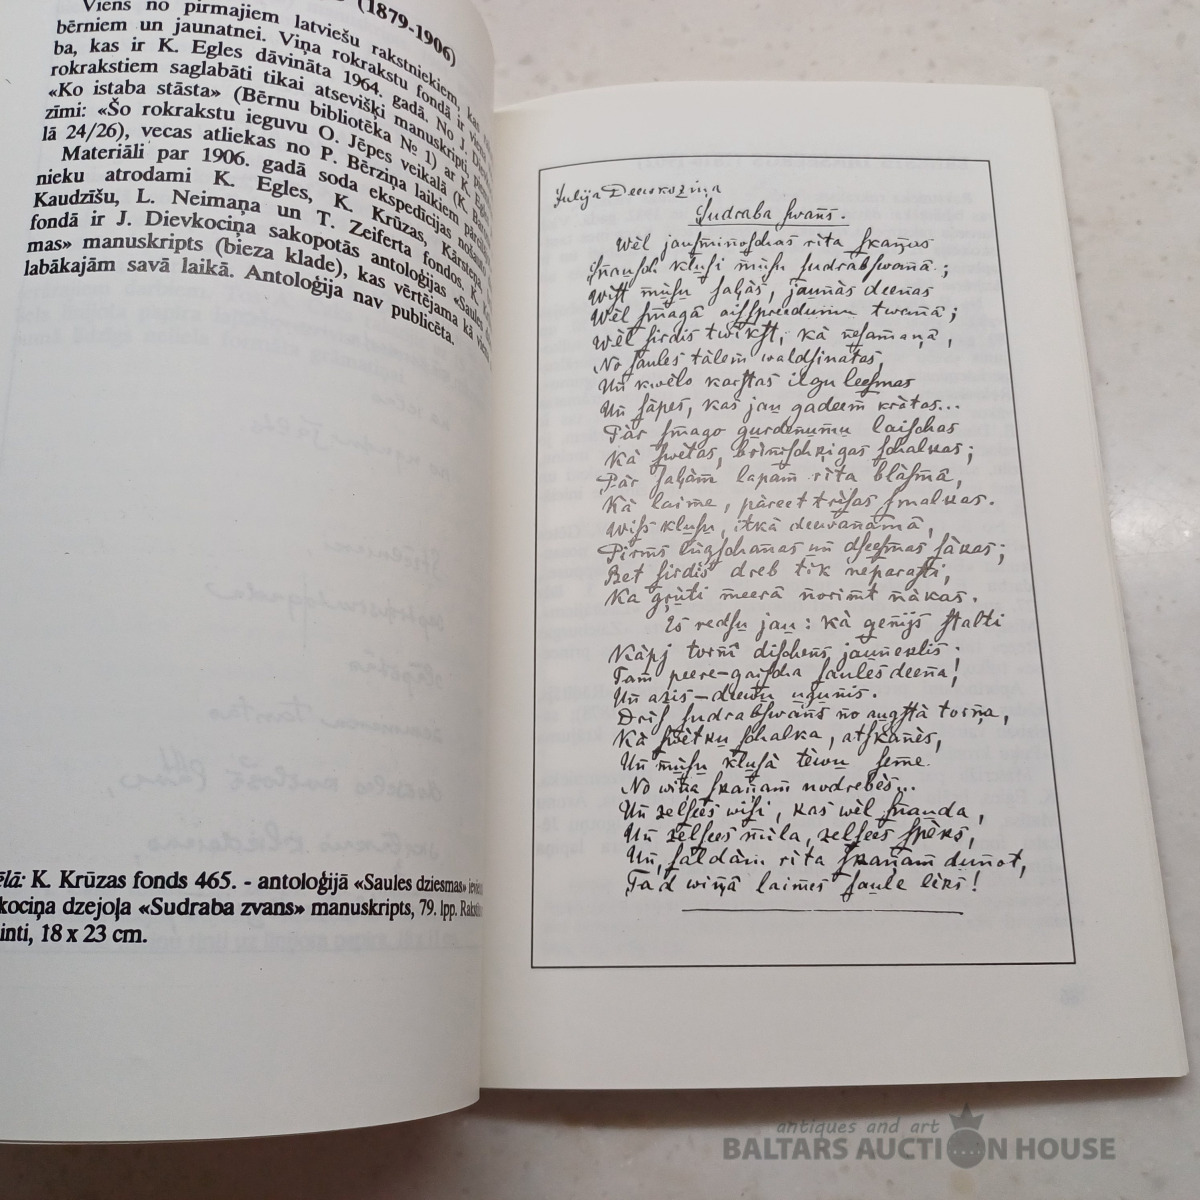 (1879-1906)
Viens no pirmajiem latviešu rakstniekiem, kas
bērniem un jaunatnei. Viņa rokrakstu fondā ir
ba, kas ir K. Egles dāvināta 1964. gadā. No J.
rokrakstiem saglabāti tikai atsevišķi manuskripti,
«Ko istaba stāsta» (Bērnu bibliotēka № 1) ar K. Egles
zīmi: «Šo rokrakstu ieguvu O. Jēpes veikalā (K.
lā 24/26), vecas atliekas no P. Bērziņa laikiem
Materiāli par 1906. gadā soda ekspedīcijas
nieku atrodami K. Egles, K. Krūzas, Kārsteņa,
Kaudzīšu, L. Neimaņa un T. Zeiferta fondos. K.
fondā ir J. Dievkociņa sakopotās antoloģijas «Saules
mas» manuskripts (bieza klade), kas vērtējama kā
labākajām savā laikā. Antoloģija nav publicēta.
ēlā: K. Krūzas fonds 465. - antoloģijā «Saules dziesmas»
kociņa dzejoļa «Sudraba zvans» manuskripts, 79. lpp.
inti, 18 x 23 cm.
Julija Deewkoziņa
Sudraba swans.
Wèl jausminoschas rita skaņas
Snausch klusi mūsu sudrabswanā;
Wist mūsu saļàs, jaunàs deenas
Wèl smagā aisspreedumu twanā;
Wèl sirdis twikst, kà nesamaņā,
No saules tàlem waldsinatas,
Un kwèlo karstas ilgu leesmas
Un sàpes, kas jau gadeem kràtas...
Pàr smago gurdenumu laischas
Kà swètas, brinischķigas schalkas;
Pàr saļàm lapam rita blàsmā,
Kà laime, pàreet trisas smalkas.
Wiss klusu, itkà deewanamā,
Pirms lūgschanas un dseesmas sàkas;
Bet sirdis dreb tik neparasti,
Ka grūti meerā norimt nàkas.
Es redsu jau: kà genijs stalti
Kàpj tornī dischens jauneklis.
Tam peere-gaischa saules deena!
Un azis-deewu uguņis.
Dris sudrabswans no augstà torņa,
Kà swètku schalka, atskanès,
Un mūsu klusà tèwu seme
No wiņa skaņam nodrebès...
Un zelsees wisi, kas wèl snauda,
Un zelsees mila, zelsees spèks,
Un, saldàm rita skaņam dunot,
Tad wiņā laimes saule lèks!
antiques and art
BALTARS AUCTION HOUSE